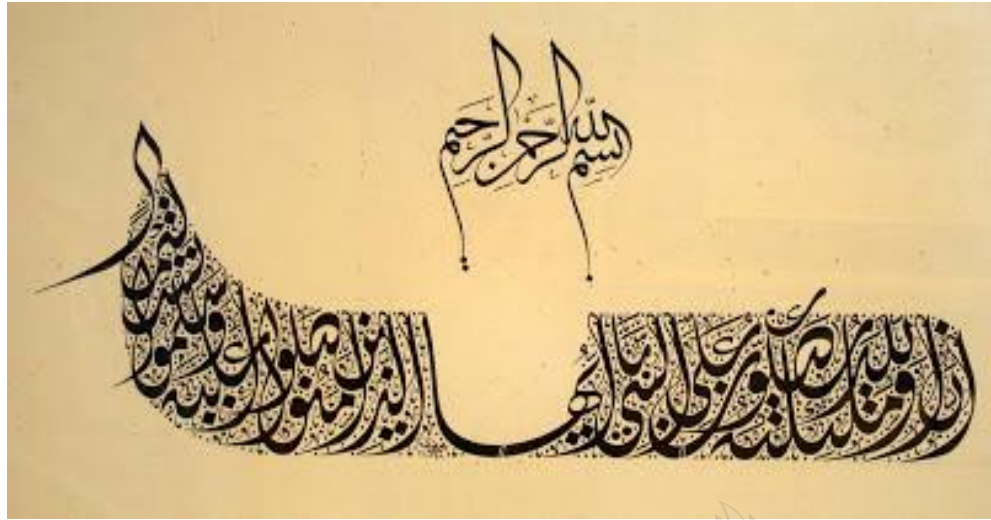 بسم الله الرحمن الرحيم
إن الله وملئكته يصلون على النبي يا أيها الذين آمنوا صلوا عليه وسلموا تسليما